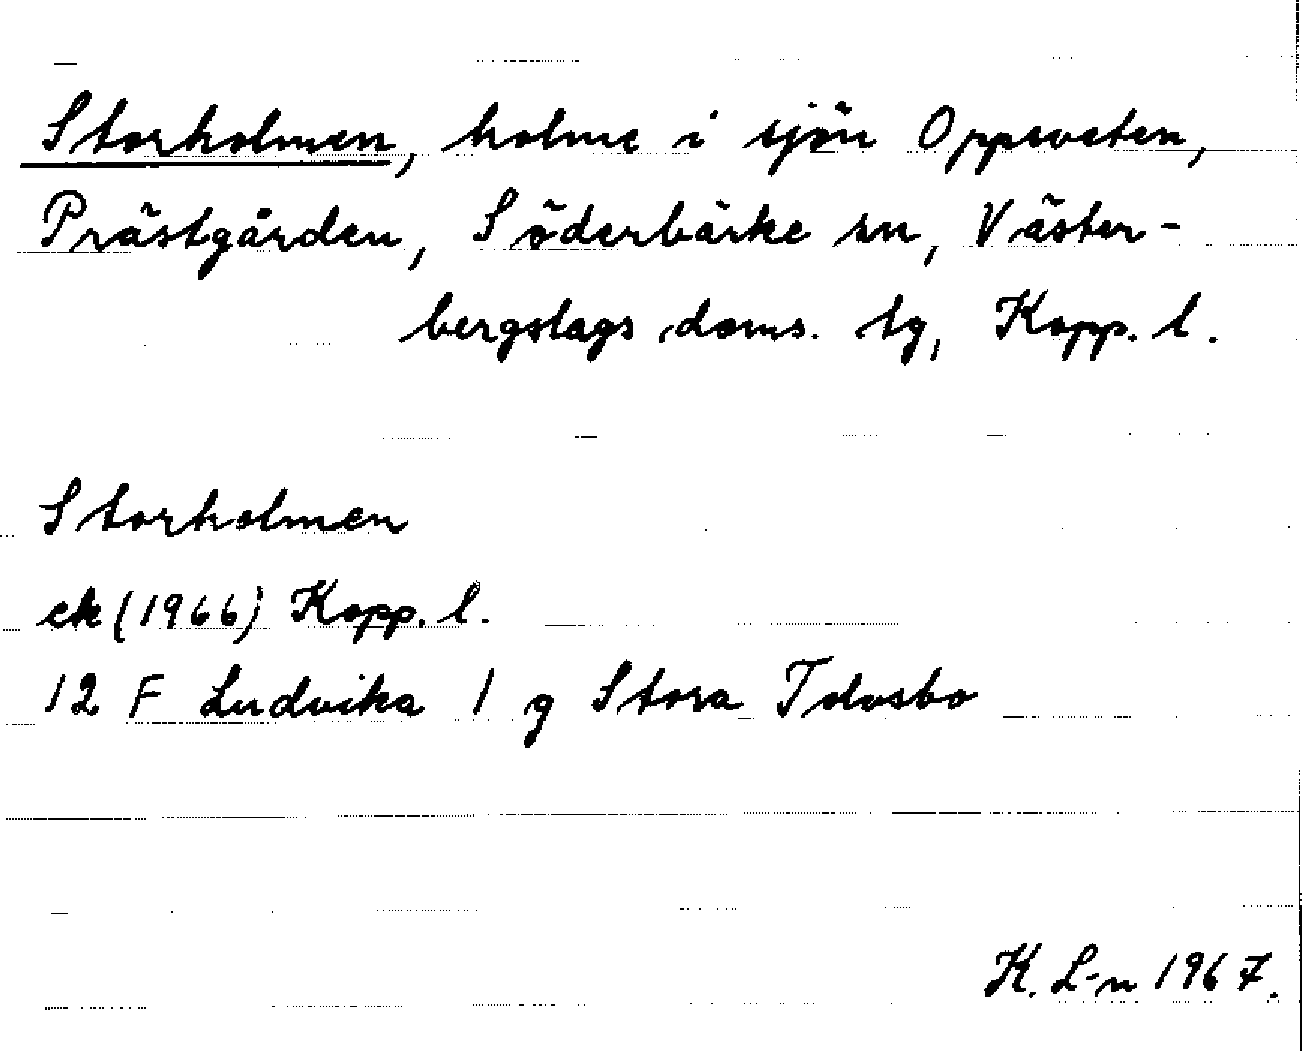 Storholmen, holme i sjön Oppsveten,
Prästgården, Söderbärke sn, Väster-
bergslags doms. tg, Kopp. l.
Storholmen
ek (1966) Kopp. l.
12 F Ludvika 1 g Stora Tolvsbo
K. L-n 1967.